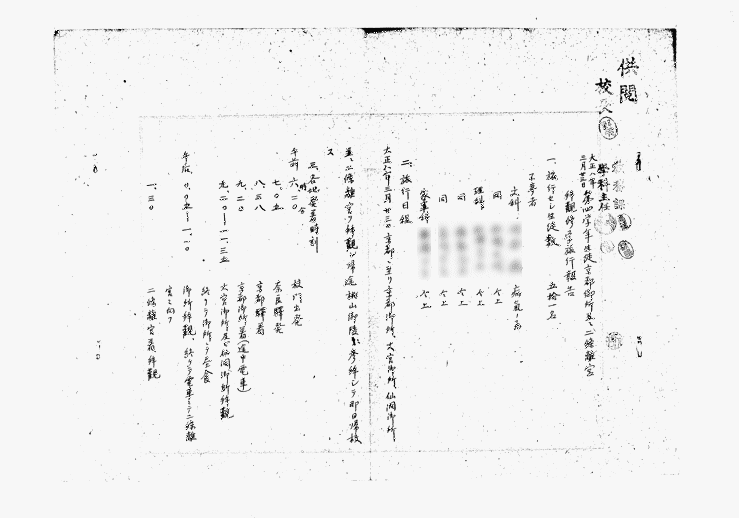 供閲
校
教務課
学科主任
大正八年
三月廿三日
第四学年生徒京都御所並ニ二條離宮
拝観修学旅行報告
一、旅行セシ生徒数 五拾一名
不参者
文科 病氣ノ為
同 仝上
理科 仝上
同 仝上
同 仝上
家事科 仝上
二、旅行日程
大正八年三月廿三日京都ニ至リ京都御所、大宮御所、仙洞御所、
並ニ二條離宮ヲ拝観シ帰途桃山御陵ニ参拝シテ即日帰校
ス
三、各地発着時刻
時 分
午前 六、二〇 校門出発
七、〇五 奈良驛発
八、三八 京都驛着
九、二〇 京都御所着(途中電車)
九、二〇―一一、三五 大宮御所及ビ仙洞御所拝観
終リテ御所ニテ昼食
午后 〇、〇五―一、一〇 御所拝観、終リテ電車ニテ二條離
宮ニ向フ
一、三〇 二條離宮着拝観